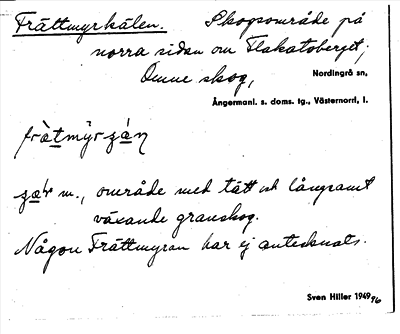 Frättmyrkälen. Skogsområde på
norra sidan om Flakatoberget,
Omne skog, Nordingrå sn,
Ångermanl. s. doms. tg., Västernorrl. l.
m., område med tätt och långsamt
växande granskog.
Någon Frättmyran har ej antecknats.
Sven Hiller 1949